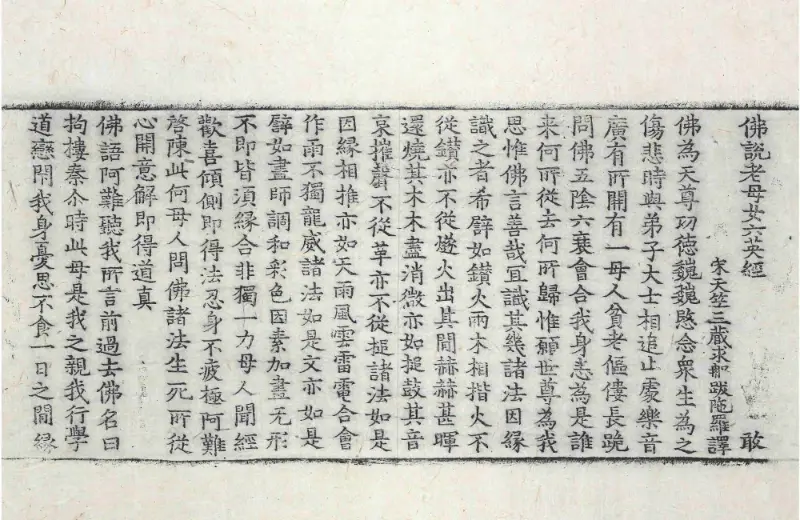 佛說老母女六英經 敢
宋天竺三藏求那跋陁羅譯
佛為天尊功德魏魏愍念衆生為之
傷悲時與弟子大士相追止處樂音
廣有所開有一母人貧老傴僂長跪
問佛五陰六衰會合我身悉為是誰
来何所從去何所歸惟願世尊為我
思惟佛言善哉宜識其幾諸法因緣
識之者希譬如鑽火兩木相揩火不
從鑽亦不從燧火出其間赫赫甚暉
還燒其木木盡消微亦如搥鼓其音
哀摧罄不從革亦不從搥諸法如是
因緣相推亦如天雨風雲雷電合會
作雨不獨龍威諸法如是文亦如是
譬如畫師調和彩色因素加畫无形
不即皆須緣合非獨一力母人聞經
歡喜傾側即得法忍身不疲極阿難
啓陳此何母人問佛諸法生死所從
心開意解即得道真
佛語阿難聽我所言前過去佛名曰
拘樓秦尒時此母是我之親我行學
道戀閉我身憂思不食一日之間緣